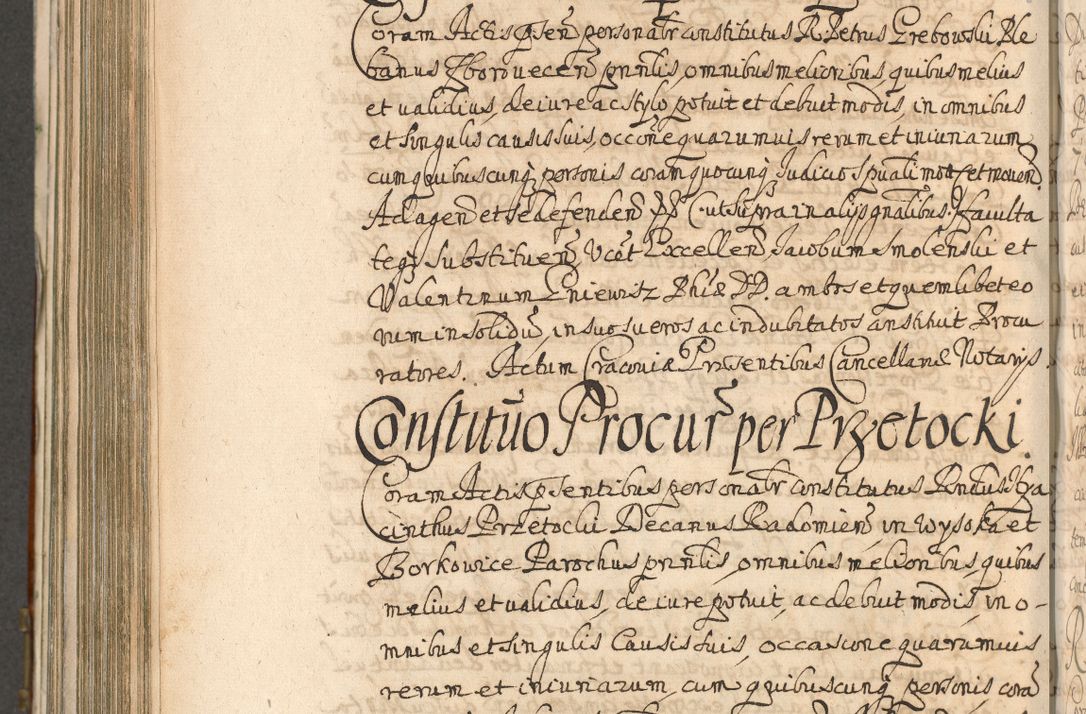 Coram Actis p̃sẽn personalr̃ constitutus R. Petrus Grebowski Ple
banus Zborovecen̄ pnn̄lis, omnibus melioribus, quibus melius
et validius, de iure ac stylo potuit et debuit modis, in omnibus
et singulis causis suis, occōne quarumvis rerum et iniuriarum
cum quibuscunq; personis coram quocunq; Iudicio Spūali motis et moven̄
Ad agen̄ et se defenden̄ DD C. ut supra in alijs gnalibus. Faculta
teq; substituen̄, Vcōt Excellen̄ Iacobum Smoleński et
Valentinum Gniewisz Phiæ DD. ambos et quemlibet eo
rum in solidū, in suos veros ac indubitatos constituit Procu
ratores. Actum Cracoviæ Præsentibus Cancellariæ Notarijs.
Constitūo Procur̃ per Przetocki.
Coram Actis p̃sentibus personalr̃ constitutus Rndus Hya
cinthus Przetocki Decanus Radomien̄, in Wysoka et
Borkowice Parochus pnn̄lis, omnibus melioribus, quibus
melius et validius, de iure potuit, ac debuit modis, in o-
mnibus et singulis Causis suis, occasione quarumvis
rerum et iniuriarum, cum quibuscunq; personis corā